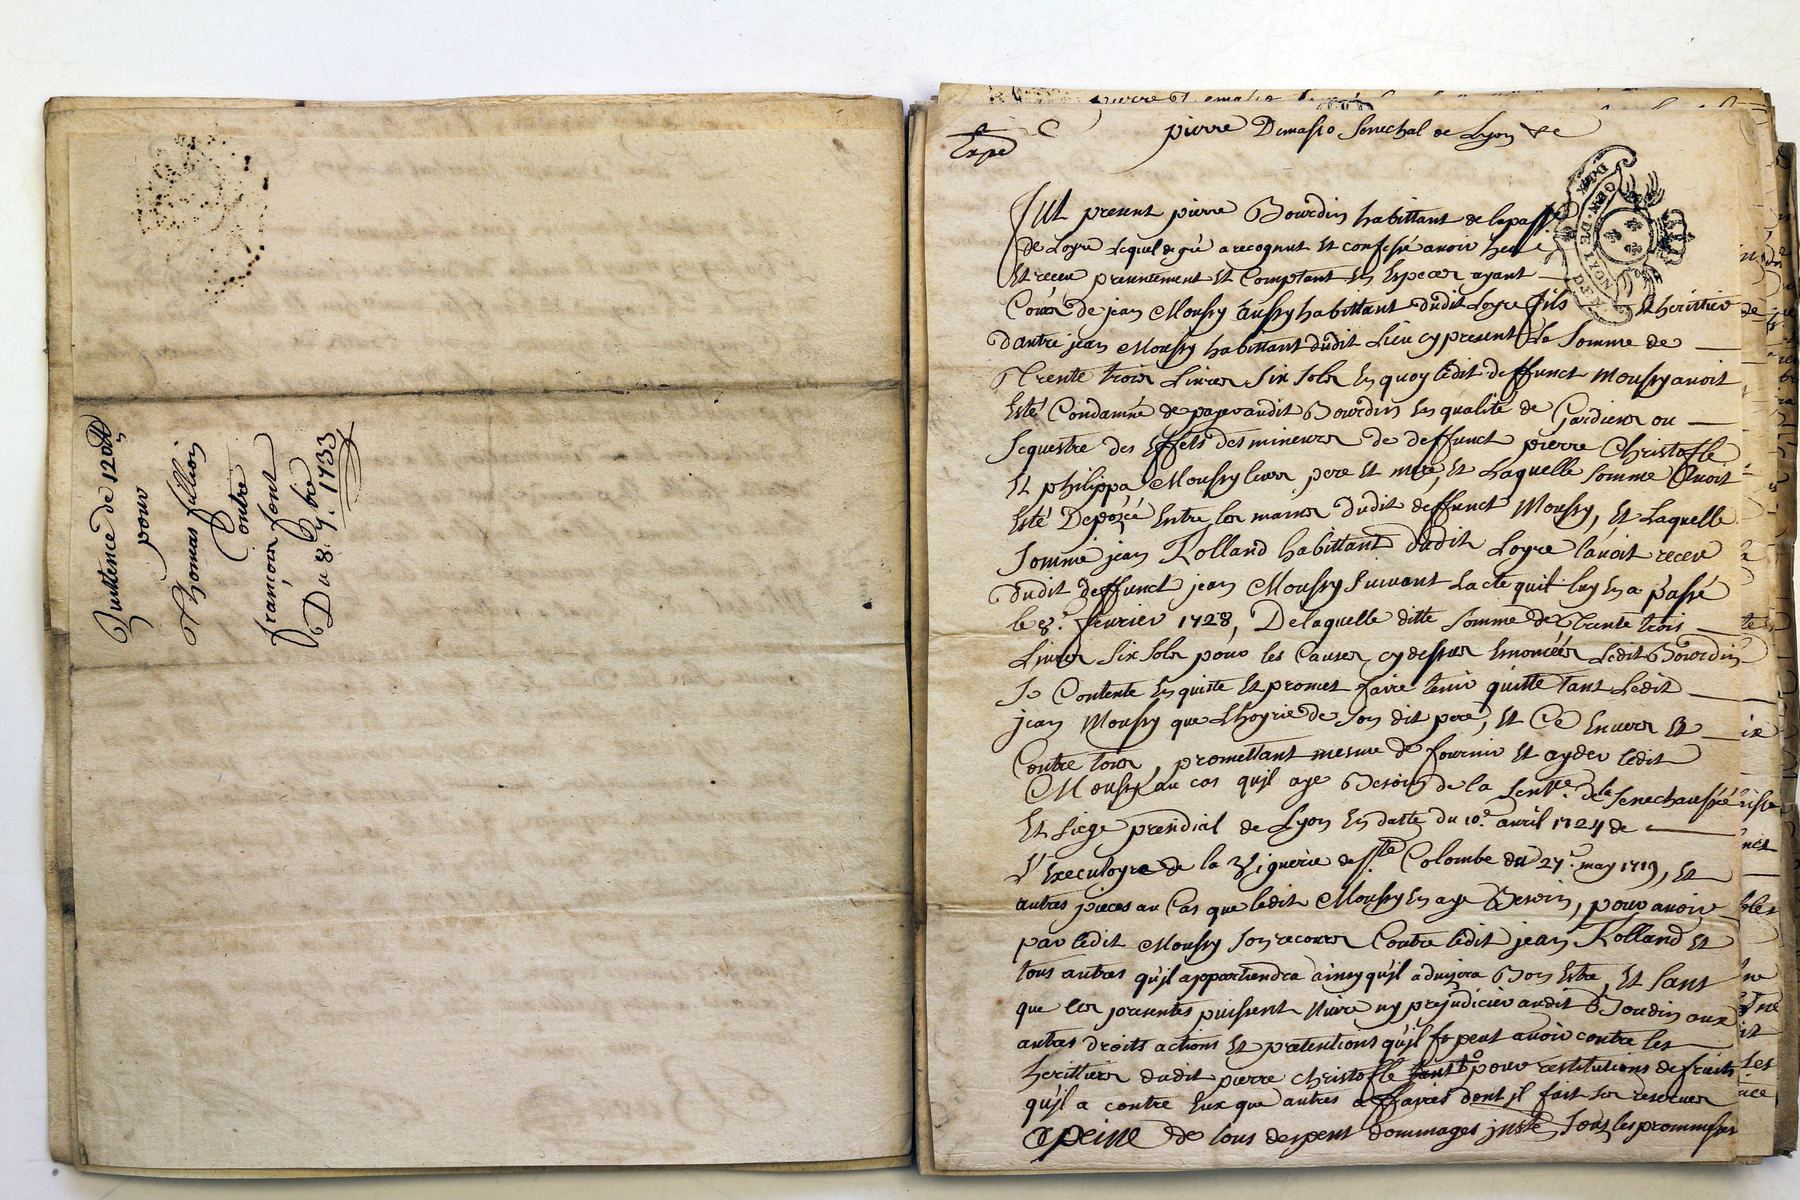 Quittence de 120
pour
Thomas fillion
Contre
françois font
Du 8. 9bre 1733
Expé
pierre Demasso Senechal de Lyon &c
GEN. DE LYON
Fut present pierre Bourdin habittant de
de Loyre Lequel de gré a recognut Et confessé avoir
Et receu presentement Et Comptant En Especes ayant
Cours de jean Moussy aussy habittant dudit Loyre fils Et heritier
dautre jean Moussy habittant dudit Lieu cy present La Somme de
Trente trois Livres Six Sols En quoy ledit deffunct Moussy avoit
Esté Condamné de payer audit Bourdin En qualité de Gardien ou
Sequestre des Effets des mineurs de deffunct pierre Christofle
Et philippa Moussy leurs pere Et mere, Et Laquelle Somme avoit
Esté Depozéé Entre les mains dudit deffunct Moussy, Et Laquelle
Somme jean Rolland habittant dudit Loyre lavoit receu
dudit deffunct jean Moussy Suivant Lacte quil luy En a passé
le 8e. fevrier 1728, De laquelle ditte Somme de Trente trois
Livres Six Sols pour les Causes cy dessus Enoncéés Ledit Bourdin
Se Contente En quitte Et promet faire tenir quitte tant Ledit
jean Moussy que Lhoyrie de Son dit pere, Et Ce Envers Et
Contre tous, promettant mesme de fournir Et ayder ledit
Moussy au cas qujl aye Besoin de la Sentce. de la Senechaussée
Et Siege presidial de Lyon En datte du 10e. avril 1724 de
L'Executoyre de la Viguerie de Ste Colombe du 27e. may 1719, Et
autres pieces au Cas que ledit Moussy En aye Besoin, pour avoir
par ledit Moussy Son recours Contre ledit jean Rolland Et
tous autres qujl appartiendra ainsy qujl advisera Bon Estre, Et Sans
que les presentes puissent Nuire ny prejudicier audit Bourdin aux
autres droits actions Et pretentions qujl peut avoir contre les
herittiers dudit pierre christofle pour restitutions de fruits
qujl a contre Eux que autres affaires dont jl fait Ses reserves
A peine de tous despens dommages Sous les promesses